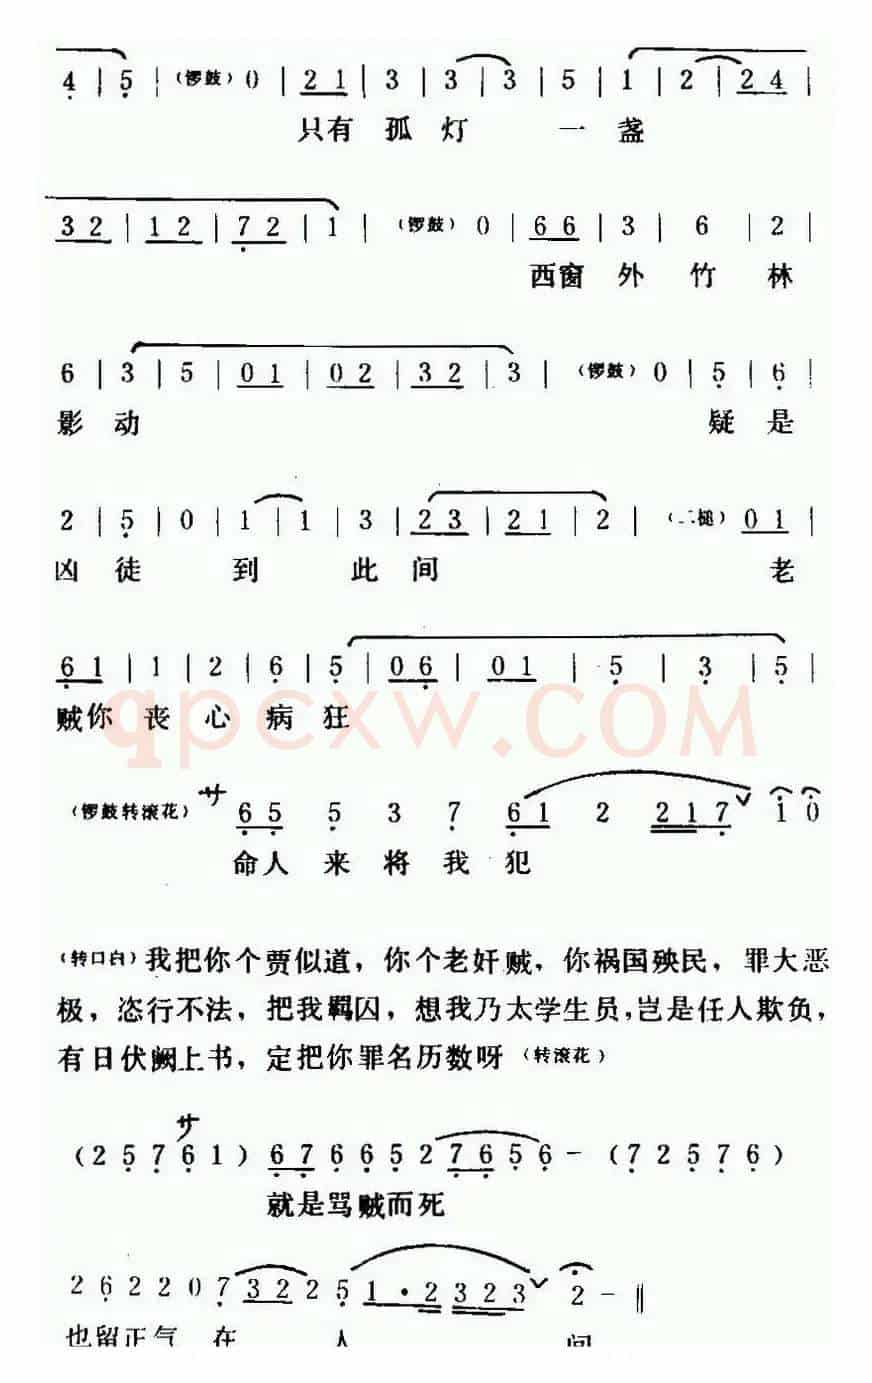 4 | 5 | (锣鼓) 0 | 21 | 3 | 3 | 3 | 5 | 1 | 2 | 24 |
只有 孤 灯 一 盏
32 | 12 | 72 | 1 | (锣鼓) 0 | 66 | 3 | 6 | 2 |
西窗 外 竹 林
6 | 3 | 5 | 01 | 02 | 32 | 3 | (锣鼓) 0 | 5 | 6 |
影 动 疑 是
2 | 5 | 0 | 1 | 1 | 3 | 23 | 21 | 2 | (二槌) 01 |
凶 徒 到 此 间 老
61 | 1 | 2 | 6 | 5 | 06 | 01 | 5 | 3 | 5 |
贼你 丧 心 病 狂
qpcxw.COM
(锣鼓转滚花) サ 65 5 3 7 61 2 217 1 0
命人 来 将 我 犯
(转口白) 我把你个贾似道，你个老奸贼，你祸国殃民，罪大恶
极，恣行不法，把我羁囚，想我乃太学生员，岂是任人欺负，
有日伏阙上书，定把你罪名历数呀 (转滚花)
(2 5 7 サ6 1) 67 6 6 5 2 76 5 6 - (7 2 5 7 6)
就是骂贼而死
2 6 2 2 0 7 32 2 5 1·2 323 2 - ‖
也留正气 在 人 间